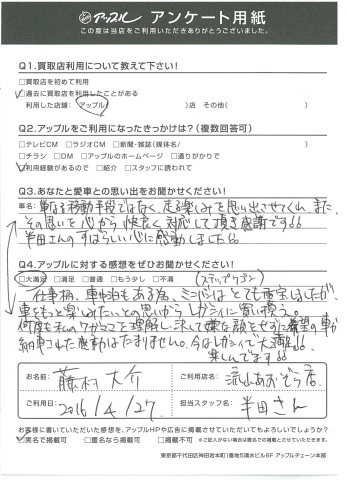 アップル アンケート用紙
この度は当店をご利用いただきありがとうございました。
Q1.買取店利用について教えて下さい!
□買取店を初めて利用
☑過去に買取店を利用したことがある
利用した店舗: アップル( )店 その他( )
Q2.アップルをご利用になったきっかけは?(複数回答可)
□テレビCM □ラジオCM □新聞・雑誌(媒体名/ )
□チラシ □DM □アップルのホームページ □通りがかりで
☑利用経験があるので □紹介 □スタッフに誘われて
Q3.あなたと愛車との思い出をお聞かせください!
車名: 単なる移動手段ではなく、走る楽しみを思い出させてくれ、また、
その思いを心から快良く対応して頂き感謝です!!
半田さんのすばらしい心に感動しました!!
Q4.アップルに対する感想をぜひお聞かせください!
□大満足 □満足 □普通 □もう少し □不満 (ステップワゴン)
仕事柄、車中泊もある為、ミニバンはとても重宝しましたが、
車をもっと楽しみたいとの思いからレガシィに買い換う。
何度も私のワガママを理解し、決して嫌な顔をせずに希望の車が
納車された感動はたまりません。今はレガシィで大満足!!
楽しんでます!!
お名前: 藤村 大介 ご利用店名: 流山おおぞら店
ご利用日: 2016/4/27. 担当スタッフ名: 半田さん
お客様に書いていただいた感想を、アップルHPや広告に掲載させていただいてもよろしいでしょうか?
☑実名で掲載可 □匿名なら掲載可 □掲載不可 ※ご記入がない場合は掲載可とさせていただきます。
東京都千代田区神田岩本町1番地5清水ビル6F アップルチェーン本部